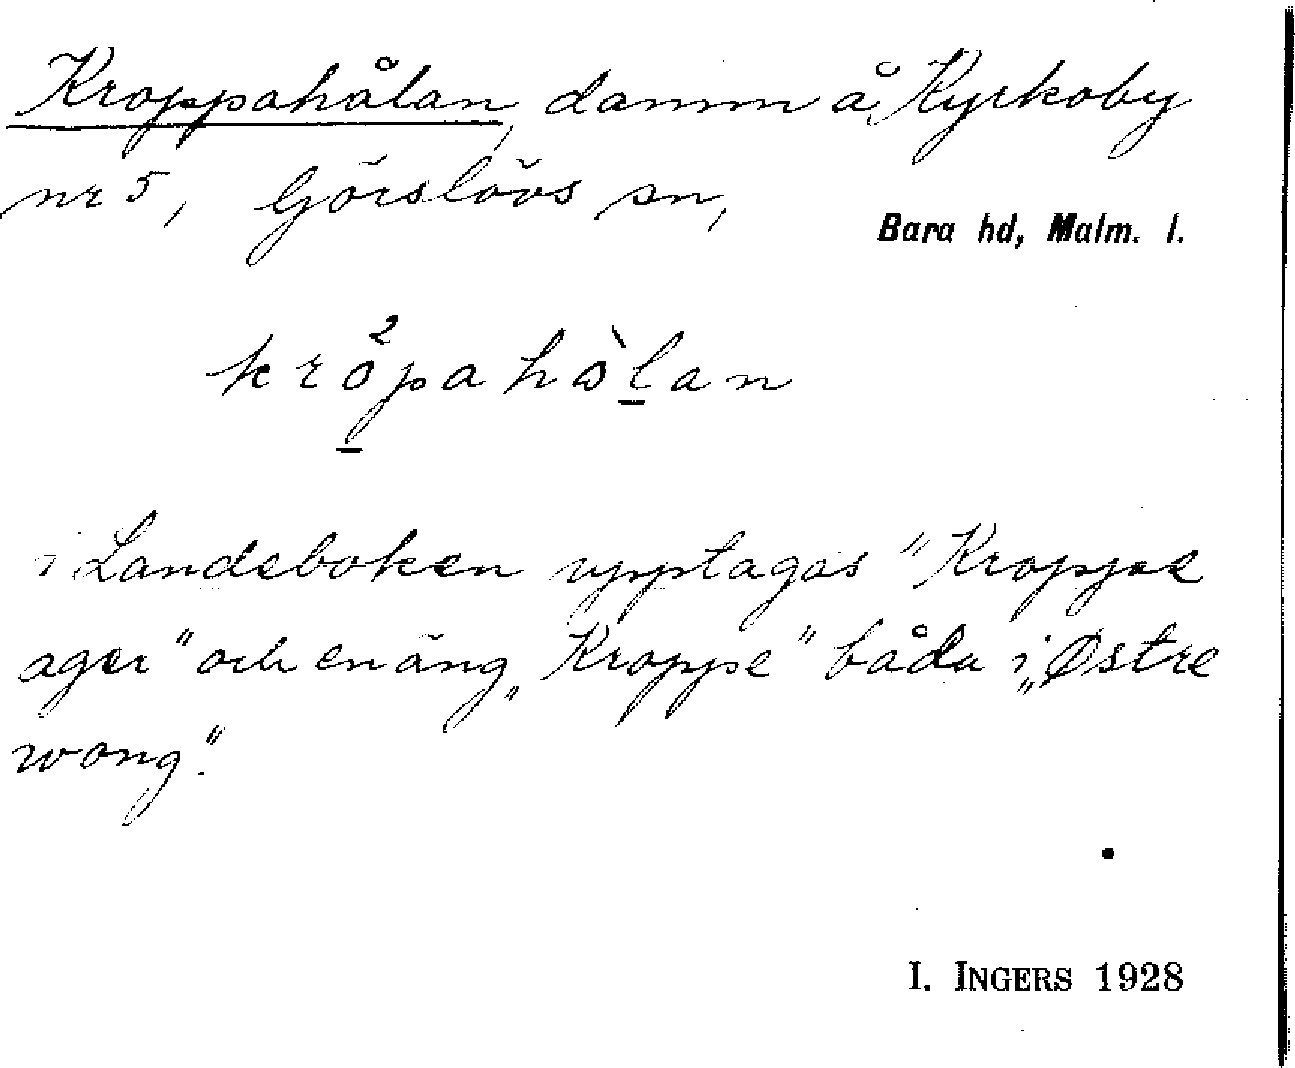 Kroppahålan, damm å Kyrkoby
nr 5, Görslövs sn,
Bara hd, Malm. l.
kröpahòlan
i Landeboken upptagas "Kroppe
ager" och en äng "Kroppe" båda i "Østre
wong".
I. INGERS 1928